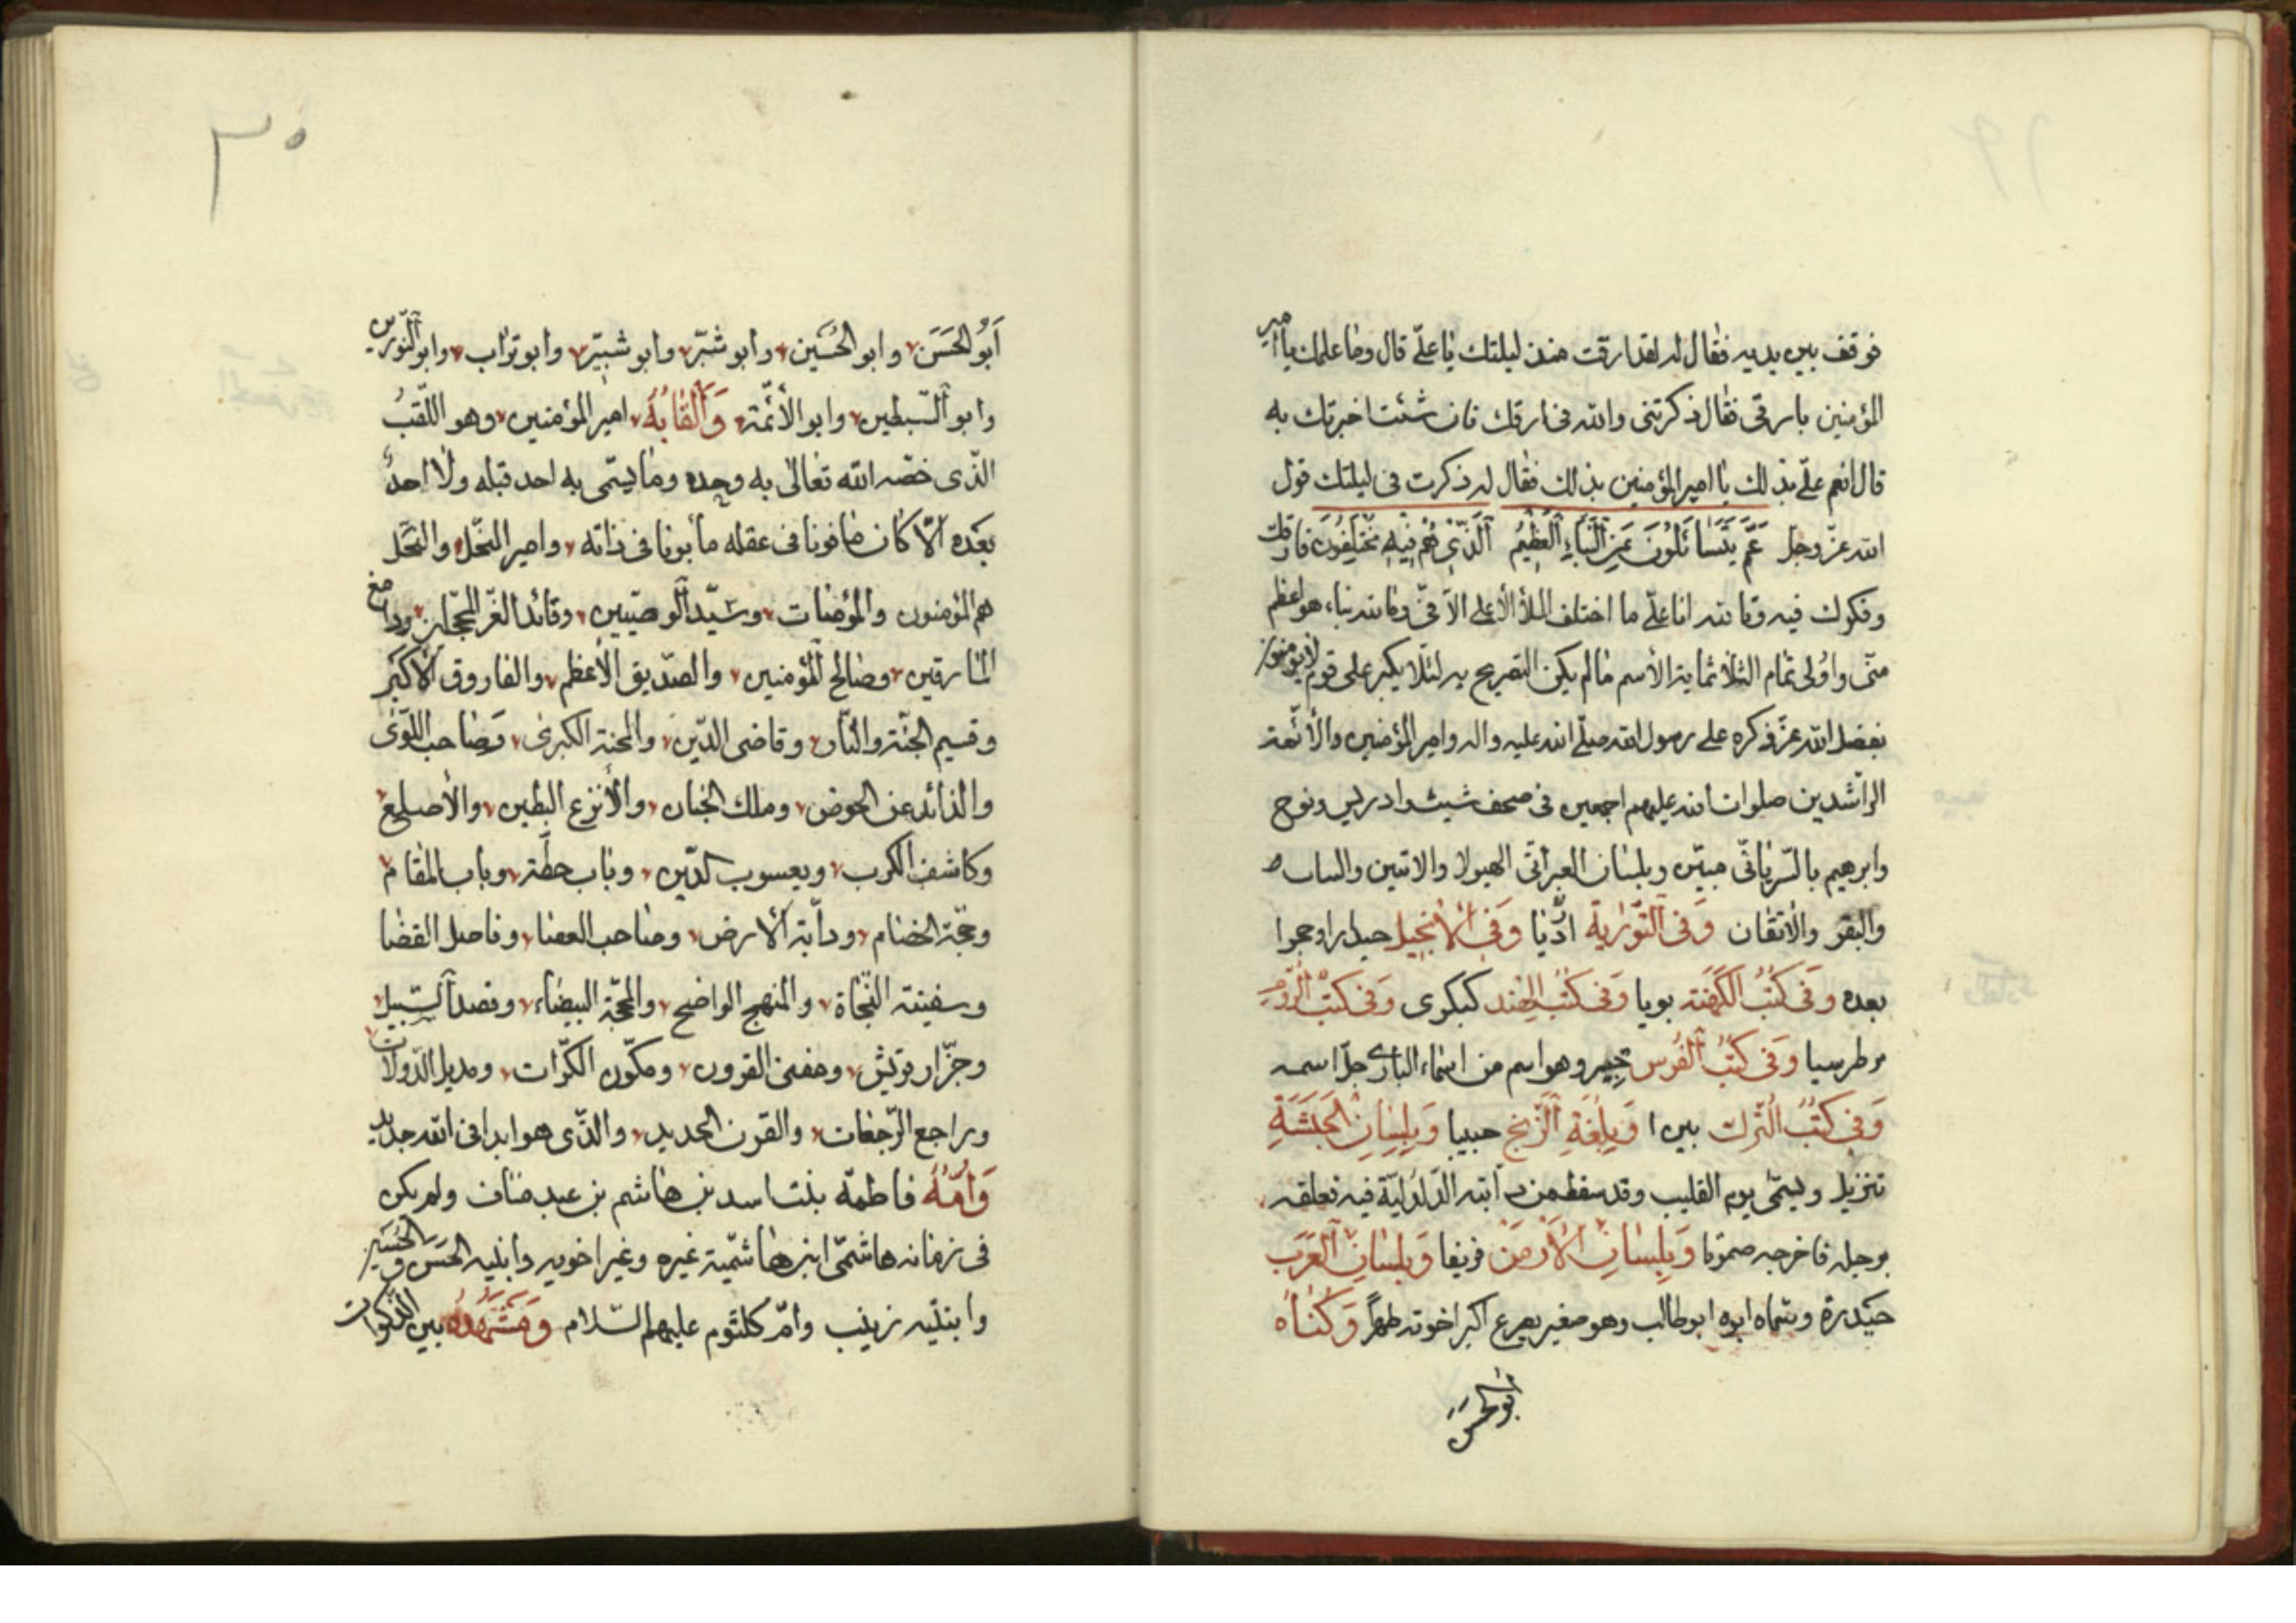 فوقف بين يديه فقال له لقد ارقت منذ ليلتك يا علىّ قال وما علمك يا امير
المؤمنين بارقى فقال ذكرتنى والله فى ارقك فان شئت اخبرتك به
قال انعم علىّ بذلك يا امير المؤمنين بذلك فقال له ذكرت فى ليلتك قول
الله عزّ وجل عَمَّ يَتَسَائَلُونَ عَنِ النَّبَاءِ الْعَظِيْمِ الَّذِّى هُمْ فِيْهِ مُخْتَلِفُونَ فارقك
وفكرك فيه وتا لله انا علىّ ما اختلف الملأ الأعلى الاّ فىّ وما لله نباء هو اعظم
منّى واولى تمام الثلاثماية الأسم ما لم يكن التصريح به لئلّا يكبر على قوم لا يؤمنون
بفضل الله عزّ ذكره على رسول الله صلّى الله عليه واله وامير المؤمنين والأئمة
الرّاشدين صلوات الله عليهم اجمعين فى صحف شيث وادريس ونوح
وابرهيم بالسّريانّى مبيّن وبلسان العبرانّى الهيولا والامين والساب
والبقر والاتقان وَفى التَّوْرٰيةِ ادّيا وَفى الأنجيل حيدرا وحجرا
بعده وَفى كتُبُ الكَهَنَة بويا وَفى كتُبُ الهِند كبكرى وَفى كتُبْ الرّومِ
بوطرسيا وَفى كتُبُ الْفُرس جبير وهو اسم من اسماء البارى جلّ اسمه
وَفى كتُبُ التُّرك بيرا وَبِلُغَةِ الزَّنج حبيبا وَبِلِسٰانِ الحَبَشَةِ
تنزيل ويسمّى يوم القليب وقد سقط من دابته الدّلدليّة فيه فعلقه
برجله فاخرجه صموتا وَبِلِسٰانِ الْأَرْمَنْ فريقا وَبِلسٰانِ الْعَرَب
حَيْدرة وسمّاه ابوه ابو طالب وهو صغير يصرع اكبر اخوته ظهيراً وَكُنٰاهُ
ابو الحسن
٣٥
اَبُو الحَسَن وابو الحُسَين وابو شَبّر وابو شبيّر وابو تراب وابو النّورين
وابو السّبطين وابو الأئمّة وَاَلْقٰابُهُ امير المؤمنين وهو اللّقبُ
الذّى خصّه الله تعالى به وحده وما يسمّى به احد قبله ولا احدٌ
بعْده الاّ كان مافونا فى عقله مأبونا فى ذاته وامير النّحل والنّحَل
هم المؤمنون والمؤمنات وسيّد الوصيّين وقائد الغرّ المحجّلين ودامغ
المارقين وصالح المؤمنين والصدّيق الأعظم والفاروق الأكبَر
وقسيم الجنّة والنّار وقاضى الدّين والمحنة الكبرى وَصاحب اللّوى
والذائد عن الحوض وملك الجنان والأنزع البطين والأصليع
وكاشف الكرب ويعسوب الدّين وباب حطّة وباب المقام
وحجّة الخصام ودابّة الأرض وصاحب العصا وفاصل القضا
وسفينة النّجاة والمنهج الواضح والمحجّة البيضاء وقصد السّبيل
وجزّار قريش ومفنى القرون ومكّون الكرّات ومديل الدّولات
وراجع الرّجعات والقرن الحديد والذّى هو ابدا فى الله جديد
وَاُمُّهُ فاطمة بنت اسد بن هاشم بن عبد مناف ولم يكن
فى زمانه هاشمّى ابن هاشميّة غيره وغير اخويه وابنيه الحَسَن والحُسَين
وابنتيه زينب وامّ كلثوم عليهم السّلام وَمَشْهَدُهُ بين الذّكوات